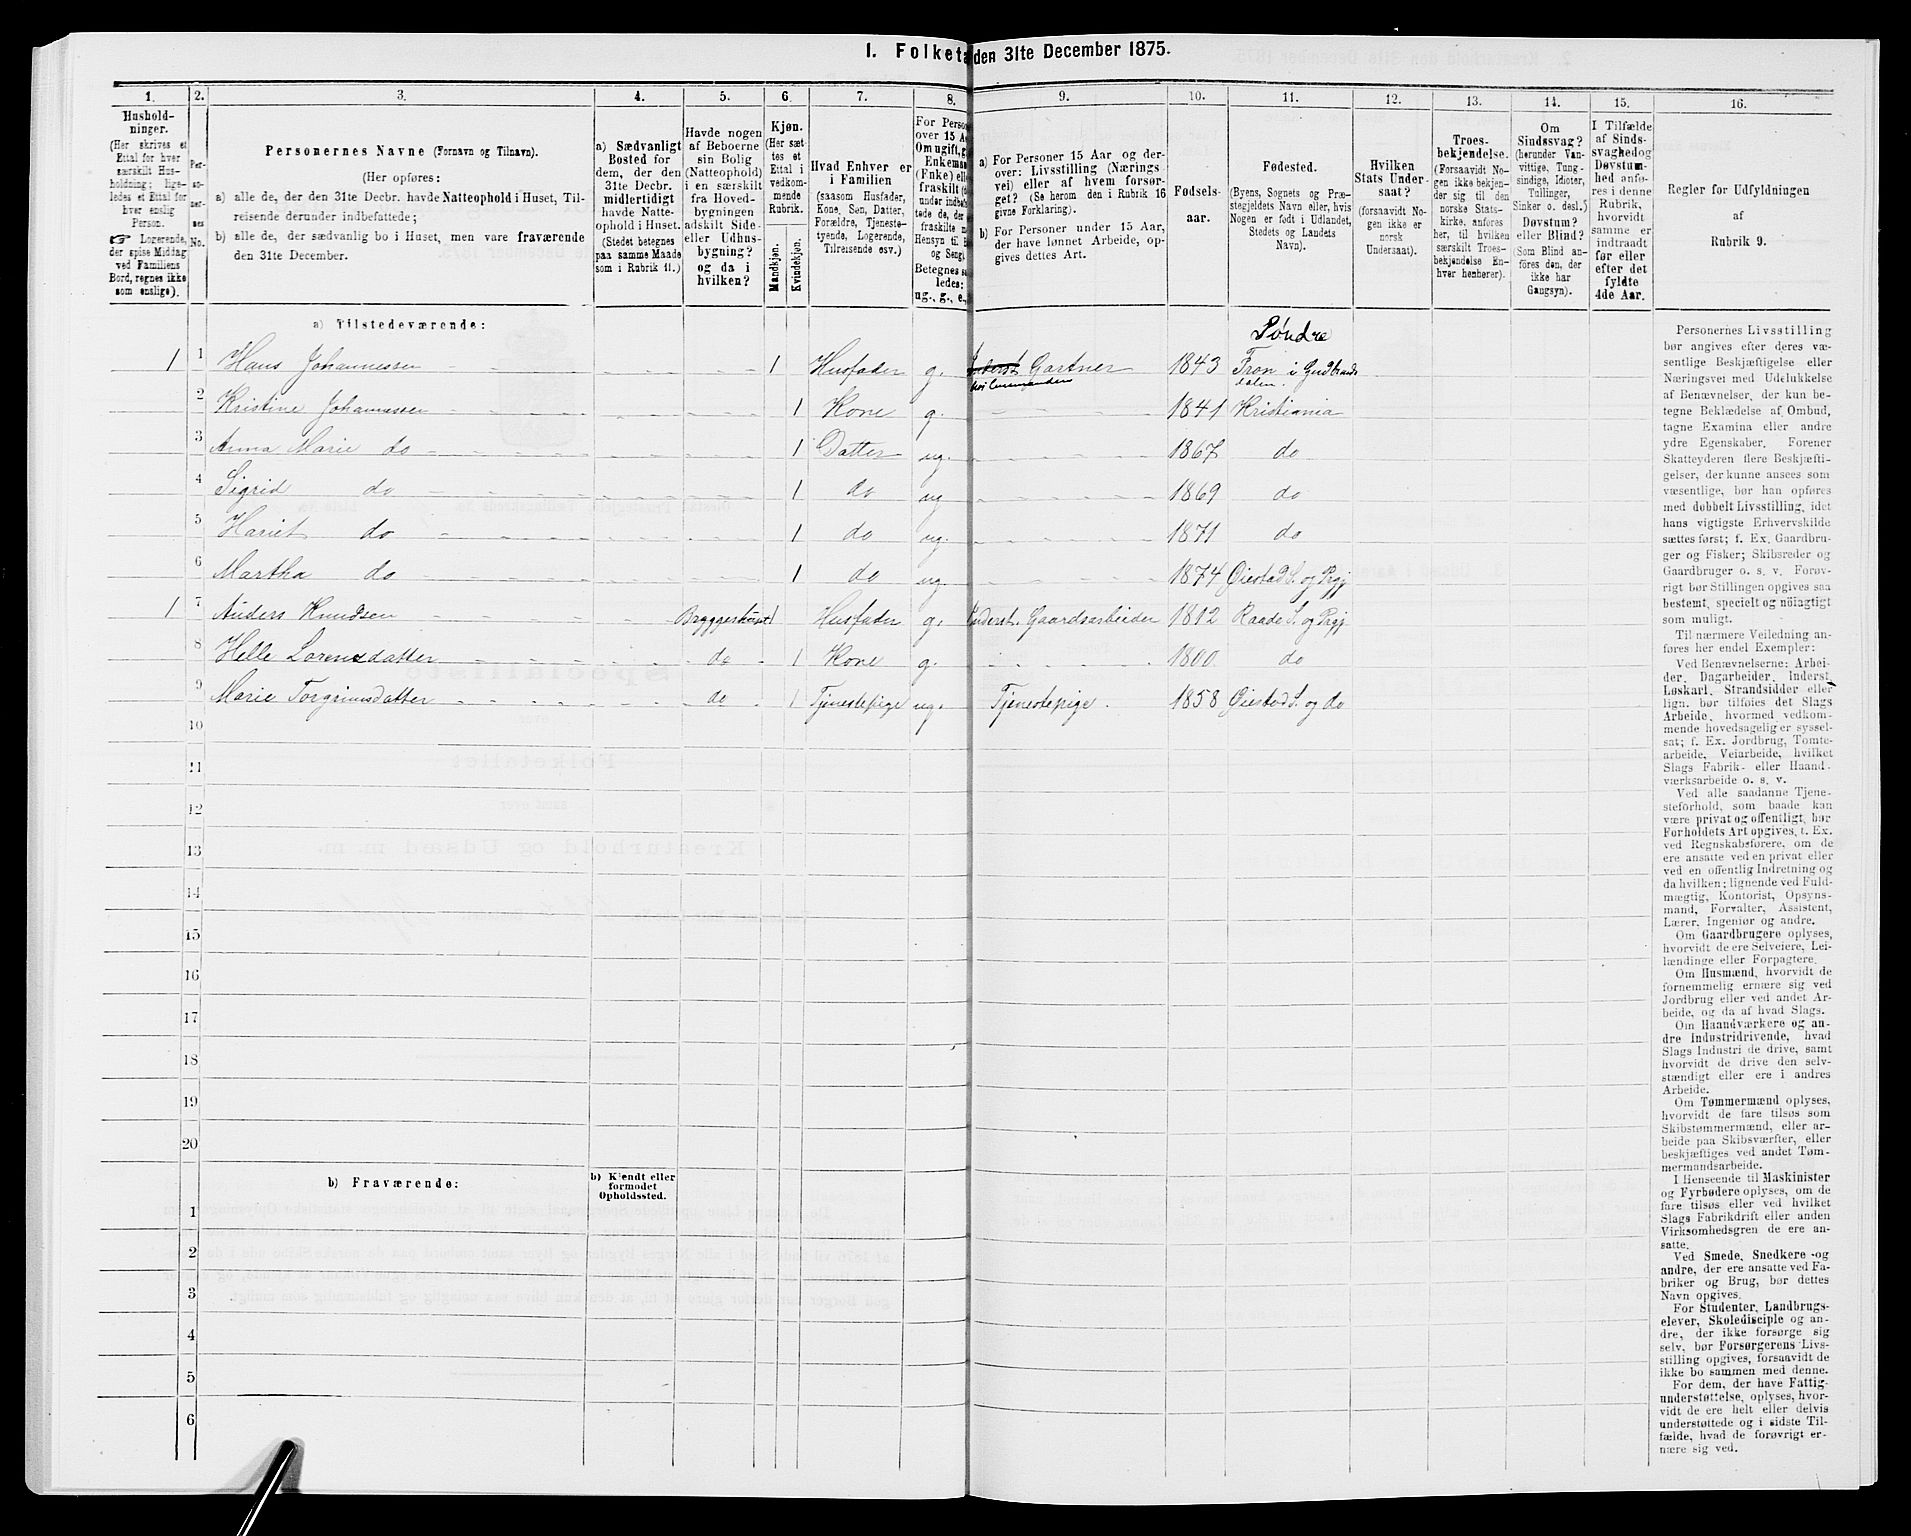 I. Folketa den 31te December 1875.
1. 2. 3. 4. 5. 6. 7. 8. 9. 10. 11. 12. 13. 14. 15. 16.
Hushold-
ninger.
(Her skrives et
Ettal for hver
særskilt Hus-
holdning; lige-
ledes et Ettal for
hver enslig
Person.
☞ Logerende,
der spise Middag
ved Familiens
Bord, regnes ikke
som enslige).
Per-
so-
ner-
nes
No.
Personernes Navne (Fornavn og Tilnavn).
(Her opføres:
a) alle de, der den 31te Decbr. havde Natteophold i Huset, Til-
reisende derunder indbefattede;
b) alle de, der sædvanlig bo i Huset, men vare fraværende
den 31te December.
a) Sædvanligt
Bosted for
dem, der den
31te Decbr.
midlertidigt
havde Natte-
ophold i Huset.
(Stedet betegnes
paa samme Maade
som i Rubrik 11.)
Havde nogen
af Beboerne
sin Bolig
(Natteophold)
i en særskilt
fra Hoved-
bygningen
adskilt Side-
eller Udhus-
bygning?
og da i
hvilken?
Kjøn.
(Her sæt-
tes et
Ettal i
vedkom-
mende
Rubrik.
Mandkjøn.
Kvindekjøn.
Hvad Enhver er
i Familien
(saasom Husfader,
Kone, Søn, Datter,
Forældre, Tjeneste-
tyende, Logerende,
Tilreisende osv.)
For Perso
over 15 A
Om ugift, g
Enkema
(Fnke) ell
fraskilt (
under indb
tede de, der
fraskilte
Hensyn til B
og Seng).
Betegnes s
ledes:
ug., g., e.,
a) For Personer 15 Aar og der-
over: Livsstilling (Nærings-
vei) eller af hvem forsør-
get? (Se herom den i Rubrik 16
givne Forklaring).
b) For Personer under 15 Aar,
der have lønnet Arbeide, op-
gives dettes Art.
Fødsels-
aar.
Fødested.
(Byens, Sognets og Præ-
stegjeldets Navn eller, hvis
Nogen er født i Udlandet,
Stedets og Landets
Navn).
Hvilken
Stats Under-
saat?
(forsaavidt No-
gen ikke er
norsk
Undersaat).
Troes-
bekjendelse.
(Forsaavidt No-
gen ikke bekjen-
der sig til den
norske Stats-
kirke, anføres
her, til hvilken
særskilt Troes-
bekjendelse En-
hver henhører).
Om
Sindssvag?
(herunder Van-
vittige, Tung-
sindige, Idioter,
Tullinger,
Sinker o. desl.)
Døvstum?
eller Blind?
(Som Blind an-
føres den, der
ikke har
Gangsyn).
I Tilfælde
af Sinds-
svaghed og
Døvstum-
hed anfø-
res i denne
Rubrik,
hvorvidt
samme er
indtraadt
før eller
efter det
fyldte
4de Aar.
Regler for Udfyldningen
af
Rubrik 9.
a) Tilstedeværende:
Søndre
1 1 Hans Johannessen 1 Husfader g. Inderst Gartner 1843 Fron i Gudbrands
dalen.
2 Kristine Johannessen 1 Kone g. 1841 Kristiania
3 Anna Marie do 1 Datter ug. 1867 do
4 Sigrid do 1 do ug 1869 do
5 Hariet do 1 do ug. 1871 do
6 Martha do 1 do ug. 1874 Øiestad S. og Prgj
1 7 Anders Knudsen Bryggerhuset 1 Husfader g. Inderst. Gaardsarbeider 1812 Raade S. og Prgj.
8 Helle Lorensdatter do 1 Kone g. 1800 do
9 Marie Torgrimsdatter do 1 Tjenestepige ug. Tjenestepige. 1858 Øiestad S. og do
10
11
12
13
14
15
16
17
18
19
20
b) Fraværende:
b) Kjendt eller
formodet
Opholdssted.
1
2
3
4
5
6
Personernes Livsstilling
bør angives efter deres væ-
sentlige Beskjæftigelse eller
Næringsvei med Udelukkelse
af Benævnelser, der kun be-
tegne Beklædelse af Ombud,
tagne Examina eller andre
ydre Egenskaber. Forener
Skatteyderen flere Beskjæfti-
gelser, der kunne ansees som
væsentlige, bør han opføres
med dobbelt Livsstilling, idet
hans vigtigste Erhvervskilde
sættes først; f. Ex. Gaardbru-
ger og Fisker; Skibsreder og
Gaardbruger o. s. v. Forøv-
rigt bør Stillingen opgives saa
bestemt, specielt og nöiagtigt
som muligt.
Til nærmere Veiledning an-
føres her endel Exempler:
Ved Benævnelserne: Arbei-
der, Dagarbeider, Inderst,
Løskarl, Strandsidder eller
lign. bør tilføies det Slags
Arbeide, hvormed vedkom-
mende hovedsagelig er syssel-
sat; f. Ex. Jordbrug, Tomte-
arbeide, Veiarbeide, hvilket
Slags Fabrik- eller Haand-
værksarbeide o. s. v.
Ved alle saadanne Tjene-
steforhold, som baade kan
være privat og offentligt, bør
Forholdets Art opgives, t. Ex.
ved Regnskabsførere, om de
ere ansatte ved en privat eller
ved en offentlig Indretning og
da hvilken; lignende ved Fuld-
mægtig, Kontorist, Opsyns-
mand, Forvalter, Assistent,
Lærer, Ingeniør og andre.
Om Gaardbrugere oplyses,
hvorvidt de ere Selveiere, Lei-
lændinge eller Forpagtere.
Om Husmænd, hvorvidt de
fornemmelig ernære sig ved
Jordbrug eller ved andet Ar-
beide, og da af hvad Slags.
Om Haandværkere og an-
dre Industridrivende, hvad
Slags Industri de drive, samt
hvorvidt de drive den selv-
stændigt eller ere i andres
Arbeide.
Om Tømmermænd oplyses,
hvorvidt de fare tilsøs som
Skibstømmermænd, eller ar-
beide paa Skibsværfter, eller
beskjæftiges ved andet Tøm-
mermandsarbeide.
I Henseende til Maskinister
og Fyrbødere oplyses, om de
fare tilsøs eller ved hvilket
Slags Fabrikdrift eller anden
Virksomhedsgren de ere an-
satte.
Ved Smede, Snedkere og
andre, der ere ansatte ved Fa-
briker og Brug, bør dettes
Navn opgives.
For Studenter, Landbrugs-
elever, Skoledisciple og an-
dre, der ikke forsørge sig
selv, bør Forsørgerens Livs-
stilling opgives, forsaavidt de
ikke bo sammen med denne.
For dem, der have Fattig-
understøttelse, oplyses, hvor-
vidt de ere helt eller delvis
understøttede og i sidste Til-
fælde, hvad de forøvrigt er-
nære sig ved.